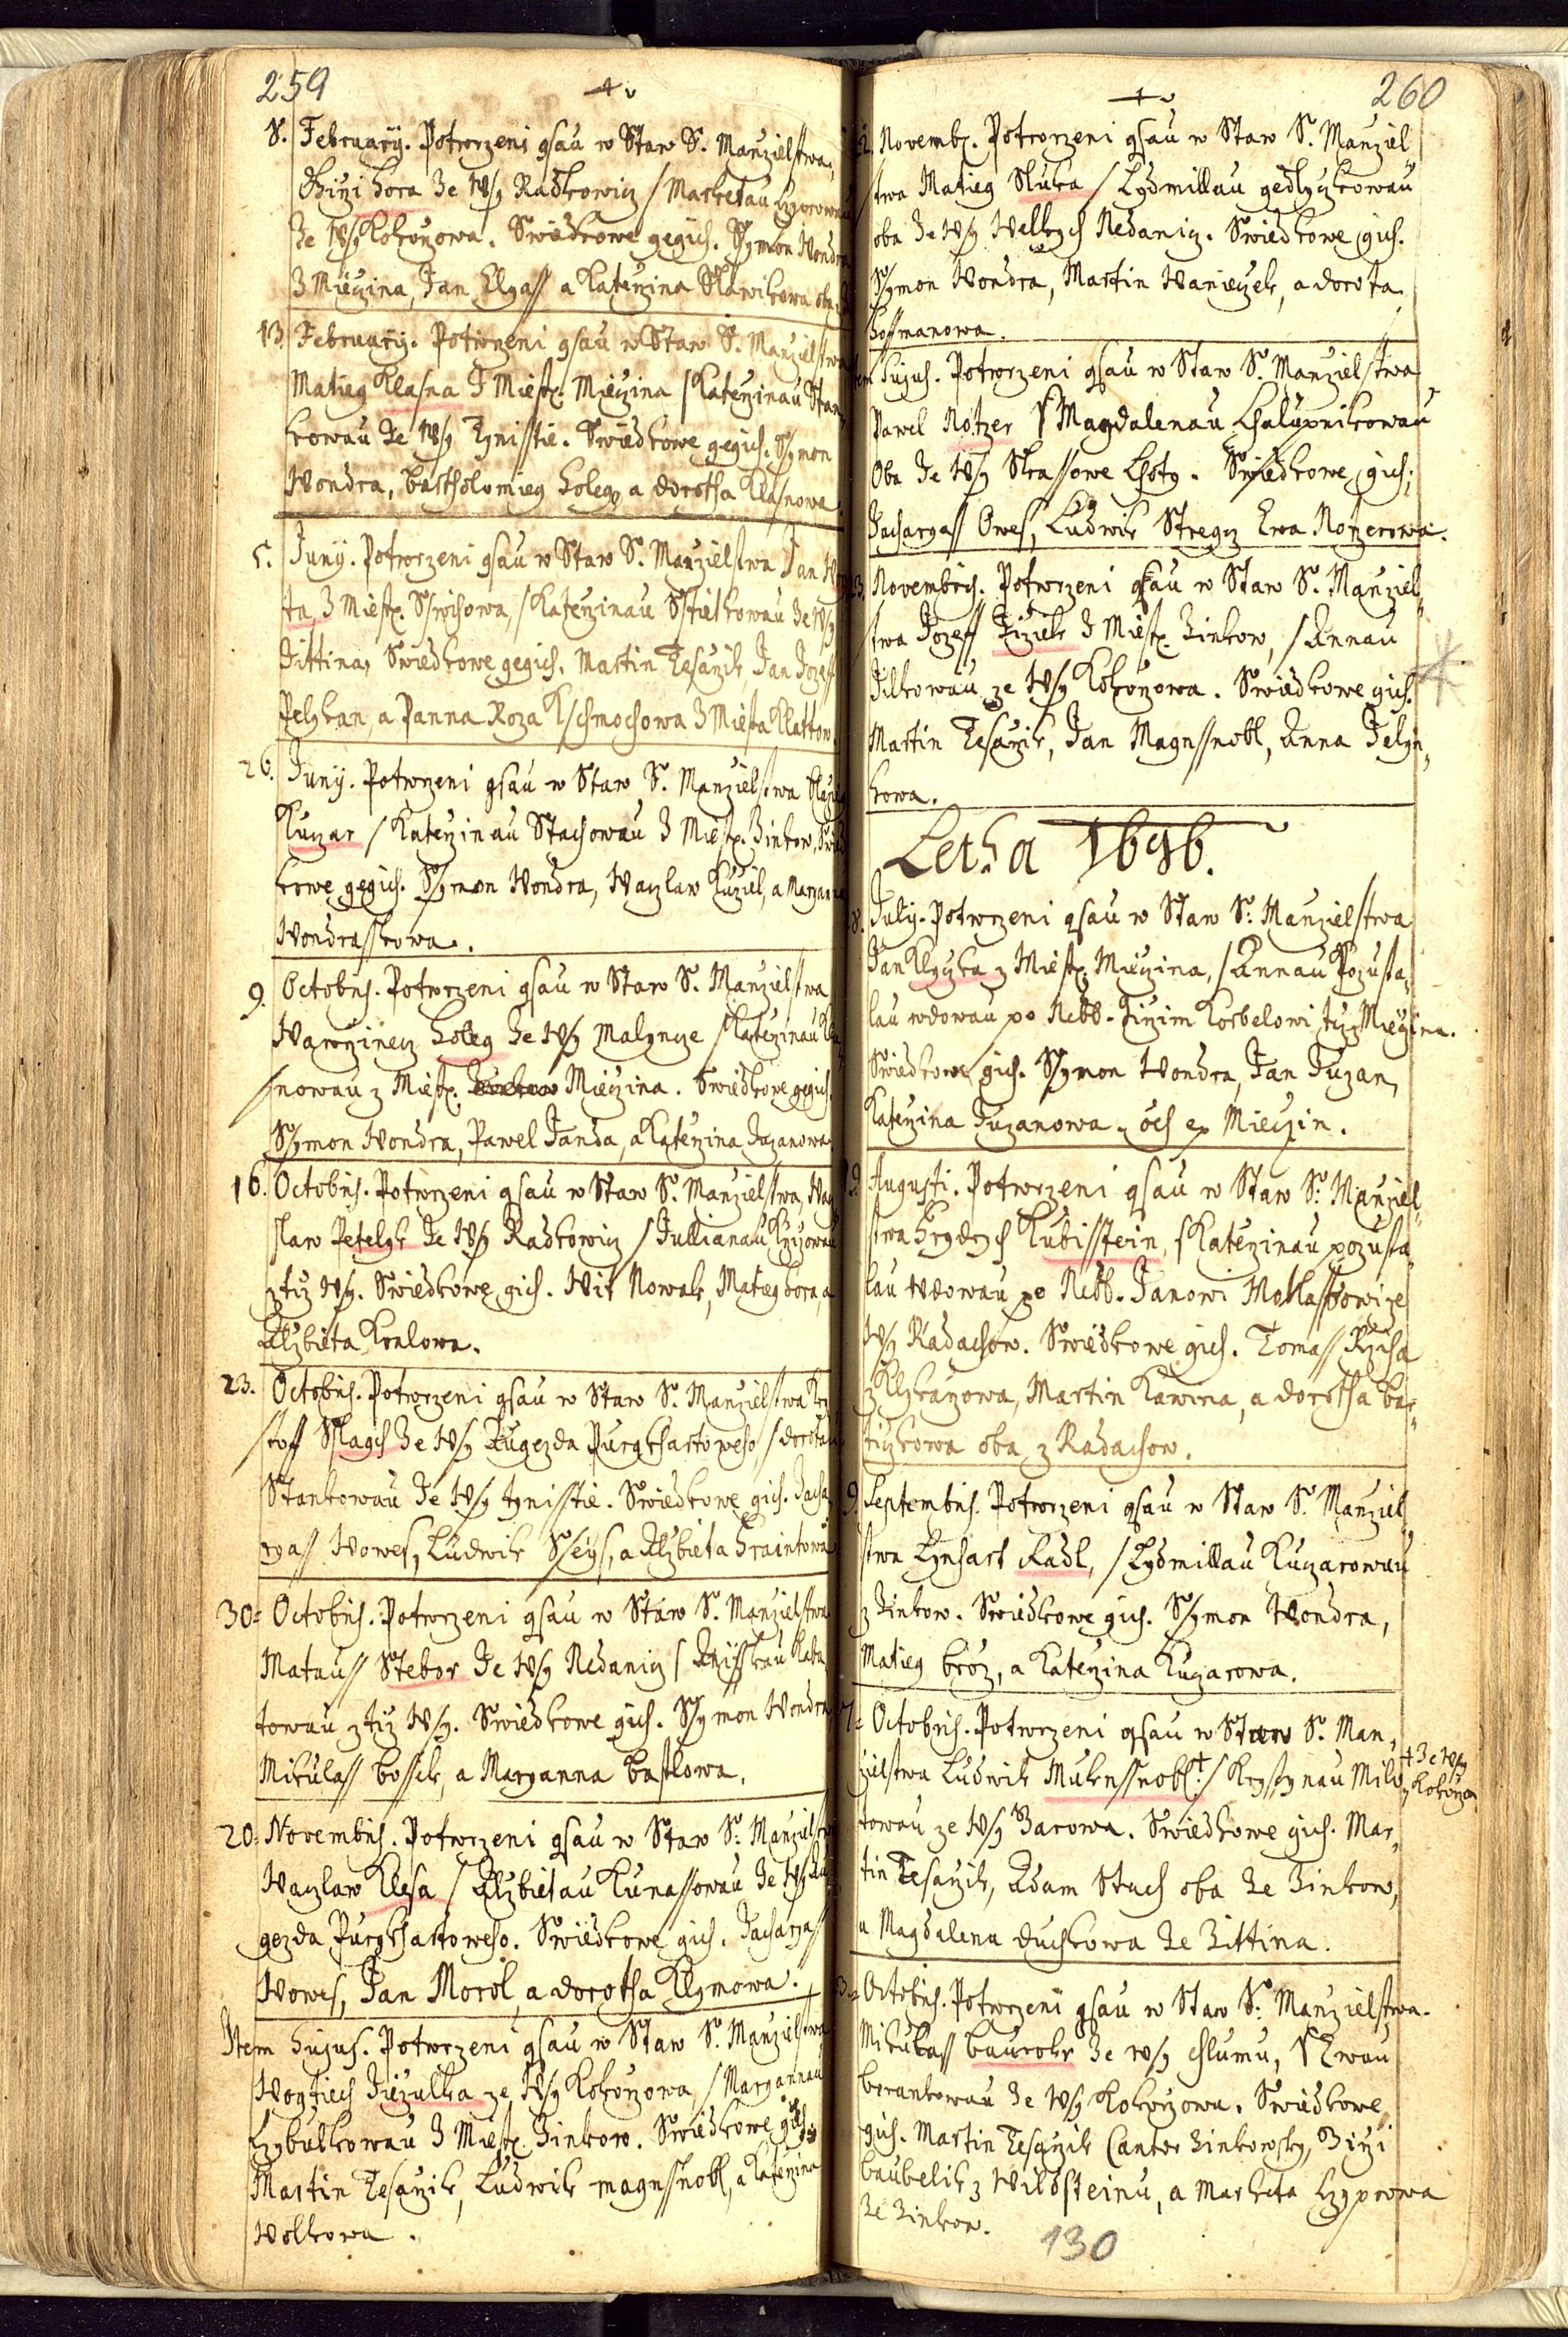 259
8. February. Potwrzeni gsau w Staw S. Manzielstwa,
Girzi Hora Ze Wsy Radkowicz / Marketau
Ze Wsy Kokorzowa. Swiedkowe gegich. Ssymon Wondra
Z Mieczina, Jan Elyass a Katerzina Slawikowa oba
13. February. Potwrzeni gsau w Staw S. Manzielstwa
Matieg Klasna Z Miest. Mieczina / Katerzinau
kowau Ze Wsy Tynisstie. Swiedkowe gegich. Ssymon
Wondra, Bartholomieg Holeg a Dorotha Klasnowa.
5. Juny. Potwrzeni gsau w Staw S. Manzielstwa Jan
ta, Z Miest. Sswihowa, / Katerzinau Sstietkowau Ze Wsy
Zittina, Swiedkowe gegich. Martin Tesarzik, Jan Jozeff
Pelykan, a Panna Roza Z Miesta Klattow
26. Juny. Potwrzeni gsau w Staw S. Manzielstwa Blazieg
Kuzar / Katerzinau Stachowau Z Miest. Zinkow, Swied
kowe gegich. Ssymon Wondra, Waczlaw Kuziel, a
Wondrasskowa.
9. Octobris. Potwrzeni gsau w Staw S. Manzielstwa
Wawrzinecz Holeg Ze Wsy Malyncze / Katerzinau Kla
snowau z Miest. Mieczina. Swiedkowe gegich.
Ssymon Wondra, Pawel Janda, a Katerzina Juzanowa
16. Octobris. Potwrzeni gsau w Staw S. Manzielstwa, Wac
slaw Petelyk Ze Wsy Radkowicz / Jullianau
z tyz Wsy. Swiedkowe gich. Wit Nowak, Matieg Hora, a
Alzbieta Kralowa.
23. Octobris. Potwrzeni gsau w Staw S. Manzielstwa Kry
stoff Sslagch Ze Wsy Augezda Purgkhartoweho / Dorotau
Stankowau Ze Wsy Tynisstie. Swiedkowe gich. Zacha
ryass Howes, Ludwik Sseys, a Alzbieta Kraintowa
30. Octobris. Potwrzeni gsau w Staw S. Manzielstwa
Matauss Stebor Ze Wsy Nedanicz / Anisskau
towau z tyz Wsy. Swiedkowe gich. Ssymon Wondra
Mikulass Bossek, a Maryanna Bastlowa.
20. Novembris. Potwrzeni gsau w Staw S. Manzielstwa
Waczlaw Klesa / Alzbietau Kunassowau Ze Wsy Au
gezda Purgkhartoweho. Swiedkowe gich. Zacharyass
Howes, Jan Morol, a Dorotha Klymowa.
Item Hujus. Potwrzeni gsau w Staw S. Manzielstwa
Wogtiech Ziezulka ze Wsy Kokorzowa / Maryannau
Czybulkowau Z Miest. Zinkow. Swiedkowe gich.
Martin Tesarzik, Ludwik Magnssnobl, a Katerzina
Wolkowa.
260
Novemb. Potwrzeni gsau w Staw S. Manziel
stwa Matieg Sluka / Lydmillau gedlyczkowau
oba Ze Wsy Welkych Nedanicz. Swiedkowe gich.
Ssymon Wondra, Martin Wanieczek, a Dorota
Hoffmanowa.
Item Hujus. Potwrzeni gsau w Staw S. Manzielstwa
Pawel Notzer S Magdalenau Chalupnikowau
Oba Ze Wsy Strassowe Lhoty. Swiedkowe gich;
Zacharyass Owes, Ludwik Stregcz Ewa Notzerowa.
23. Novembris. Potwrzeni gsau w Staw S. Manziel
stwa Jozeff Ziziek Z Miest. Zinkow, / Annau
Jilkowau ze Wsy Kokorzowa. Swiedkowe gich.
Martin Tesarzik, Jan Magnssnobl, Anna Jelyn
kowa.
Letha 1696.
8. July. Potwrzeni gsau w Staw S. Manzielstwa
Jan Klyczka z Miest. Mieczina, / Annau Pozusta
lau wdowau po Nebb. Girzim Korbelowi tyz Mieczina.
Swiedkowe gich. Ssymon Wondra, Jan Juzan,
Katerzina Juzanowa oes ex Mieczin.
19. Augusti. Potwrzeni gsau w Staw S. Manziel
stwa Frydrych Kubisstein, / Katerzinau pozusta
lau Wdowau po Nebb. Janowi ze
Wsy Radachow. Swiedkowe gich. Tomass Rzicha
z Klykarzowa, Martin Kawina, a Dorotha Bar
tizkowa oba z Radachow.
9. Septembris. Potwrzeni gsau w Staw S. Manziel
stwa Lynhart Radl, / Lydmillau Kuzarowau
z Zinkow. Swiedkowe gich. Ssymon Wondra,
Matieg Broz, a Katerzina Kuzarowa.
7. Octobris. Potwrzeni gsau w Staw S. Man
zielstwa Ludwik Mukenssnobl † / Krystynau Milo
† Ze Wsy
Kokorzowa
towau ze Wsy Barowa. Swiedkowe gich. Mar
tin Tesarzik, Adam Stach oba Ze Zinkow,
a Magdalena Duchkowa Ze Zittina.
Octobris. Potwrzeni gsau w Staw S. Manzielstwa.
Mikulass Baurok Ze Wsy Chlumu, S Ewau
Berankowau Ze Wsy Kokorzowa. Swiedkowe
gich. Martin Tesarzik Cantor Zinkowsky, Girzi
Baubelik z Wildsteinu, a Marketa Czyprowa
Ze Zinkow.
130